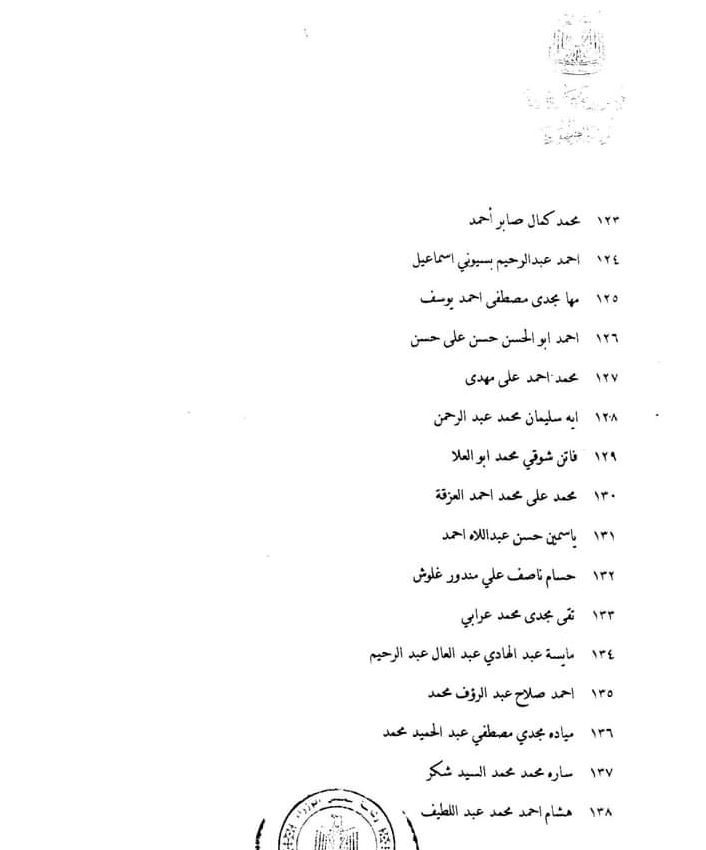 ١٢٣ محمد كمال صابر أحمد
١٢٤ احمد عبدالرحيم بسيوني اسماعيل
١٢٥ مها مجدى مصطفى احمد يوسف
١٢٦ احمد ابو الحسن حسن على حسن
١٢٧ محمد احمد على مهدى
١٢٨ ايه سليمان محمد عبد الرحمن
١٢٩ فاتن شوقي محمد ابو العلا
١٣٠ محمد على محمد احمد العزقة
١٣١ ياسمين حسن عبداللاه احمد
١٣٢ حسام ناصف علي مندور غلوش
١٣٣ تقى مجدى محمد عرابي
١٣٤ مايسة عبد الهادي عبد العال عبد الرحيم
١٣٥ احمد صلاح عبد الرؤف محمد
١٣٦ مياده مجدي مصطفي عبد الحميد محمد
١٣٧ ساره محمد محمد السيد شكر
١٣٨ هشام احمد محمد عبد اللطيف